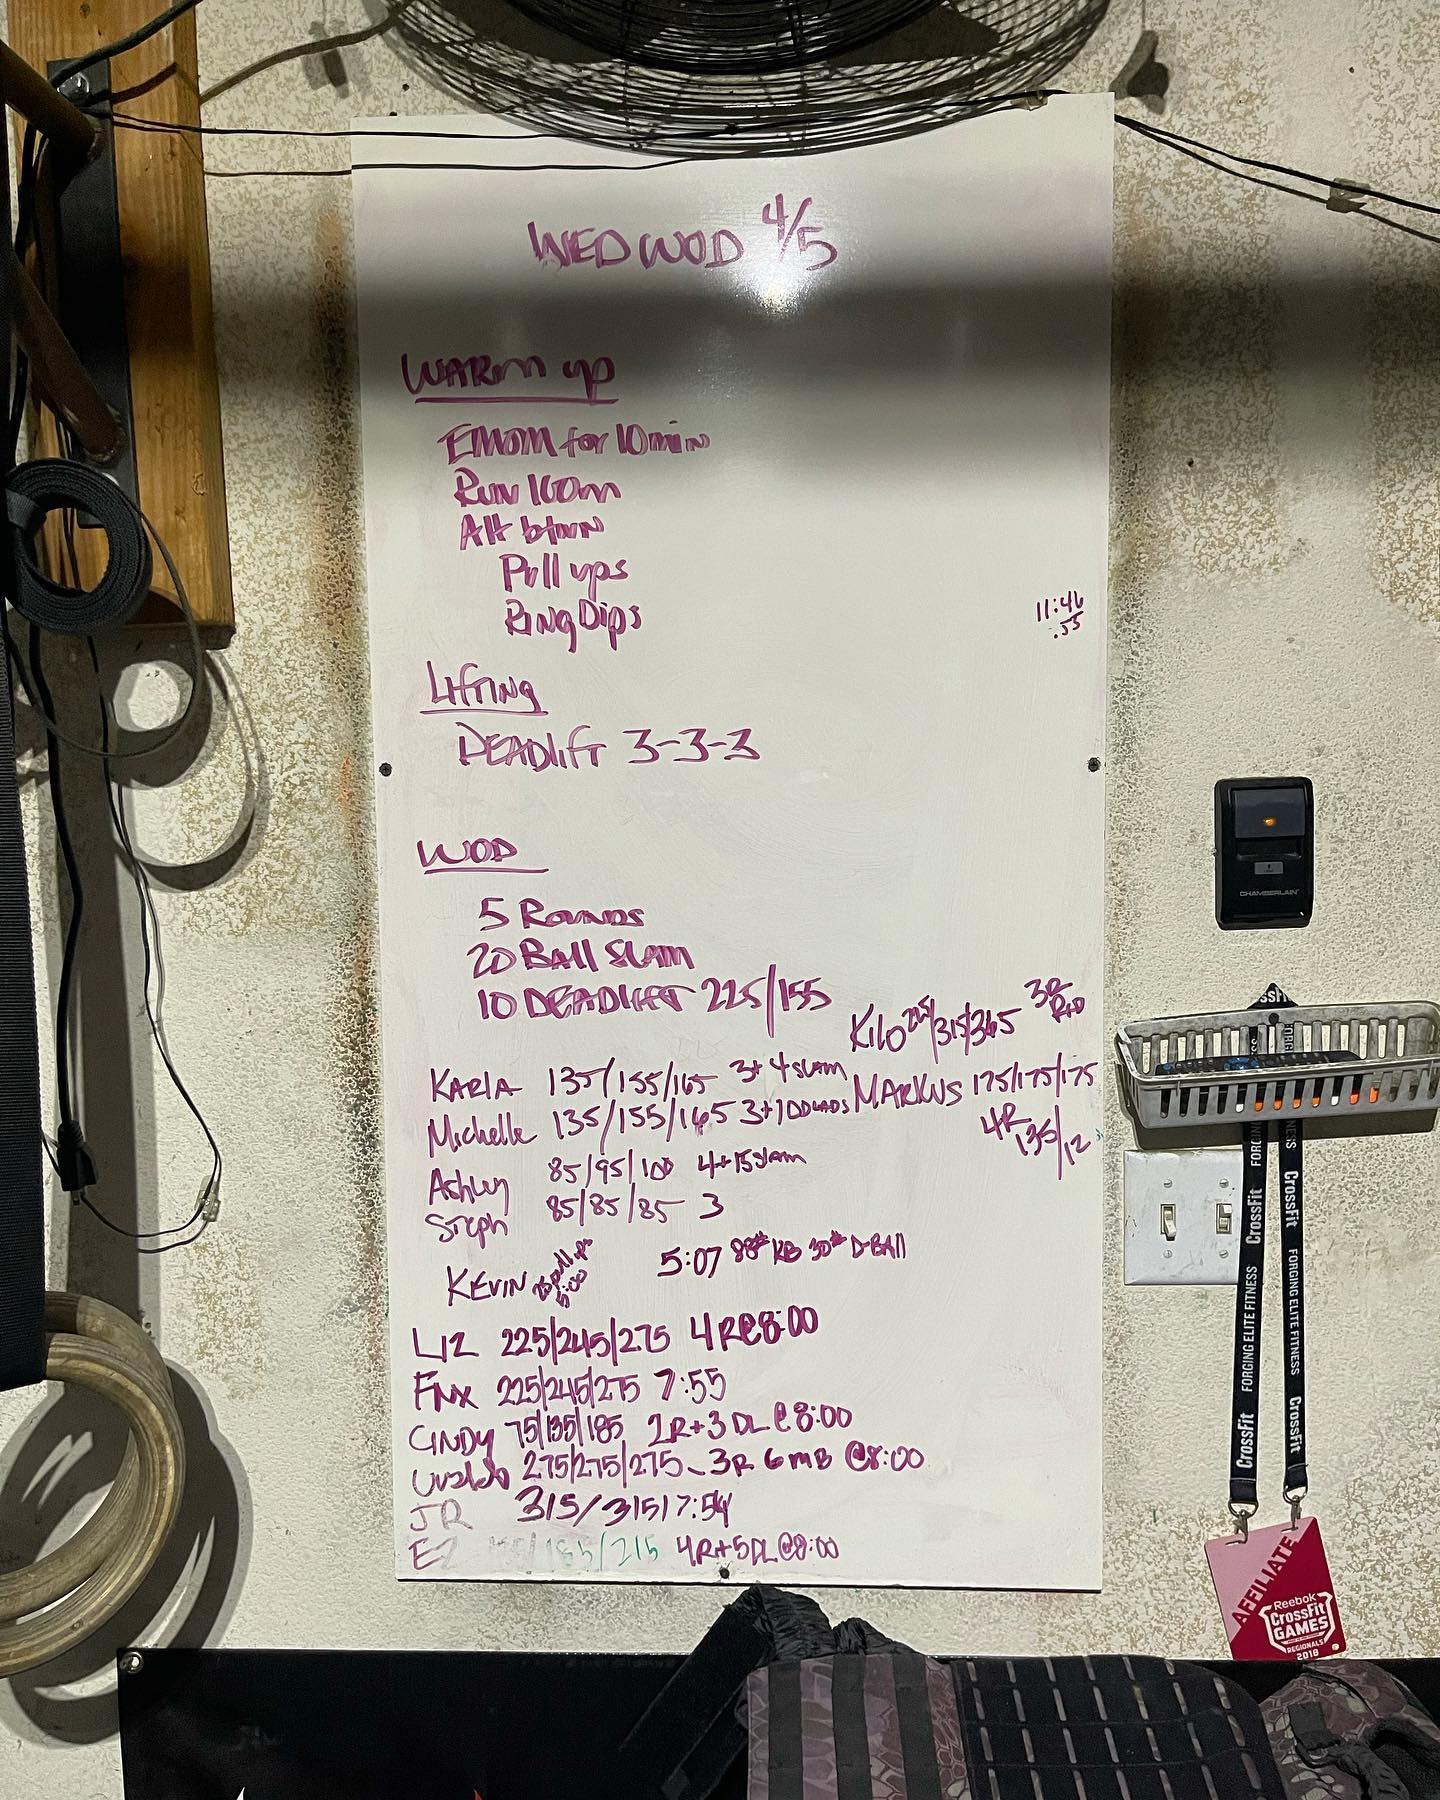 WED WOD 4/5
WARM up
EMOM for 10 min
RUN 100m
Alt btwn
Pull ups
RING Dips
11:46
:55
LIFTING
DEADLIFT 3-3-3
WOD
5 ROUNDS
20 Ball SLAM
10 DEADLIFT 225/155
KILO 225/315/365 3R
KARLA 135/155/165 3+4 SLAM
MARKUS 175/175/175
4R 135/12
Michelle 135/155/165 3+
Ashley 85/95/100 4+15 Slam
Steph 85/85/85 3
KEVIN 5:07 88# KB 30# D-BAll
5:00
LIZ 225/245/275 4R@8:00
FNX 225/245/275 7:55
CINDY 75/135/185 2R+3 DL@8:00
275/275/275 - 3R 6 MB @8:00
JR 315/315/7:54
EZ 185/215 4R+5DL@8:00
CHAMBERLAIN
CrossFit FORGING ELITE FITNESS CrossFit
CrossFit FORGING ELITE FITNESS CrossFit
AFFILIATE
Reebok
CrossFit
GAMES
REGIONALS
2018